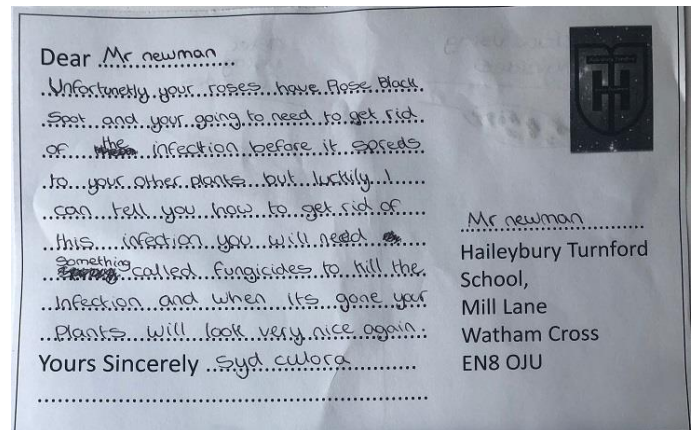 Dear Mr newman
Unfortunetly your roses have Rose Black
Spot and your going to need to get rid
of the infection before it spreds
to your other plants but luckily I
can tell you how to get rid of
this infection you will need
Something called fungicides to kill the
Infection and when its gone your
plants will look very nice again.
Yours Sincerely Syd culora
Mr newman
Haileybury Turnford
School,
Mill Lane
Watham Cross
EN8 OJU